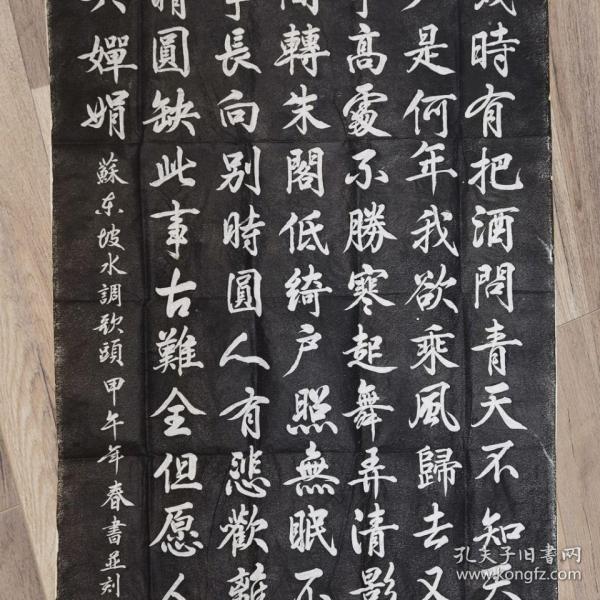 幾時有把酒問青天不知天
夕是何年我欲乘風歸去又
宇高處不勝寒起舞弄清影
間轉朱閣低綺戶照無眠不
事長向别時圓人有悲歡離
晴圓缺此事古難全但愿人
共嬋娟
蘇东坡水調歌頭 甲午年春書並刻
孔夫子旧书网
www.kongfz.com